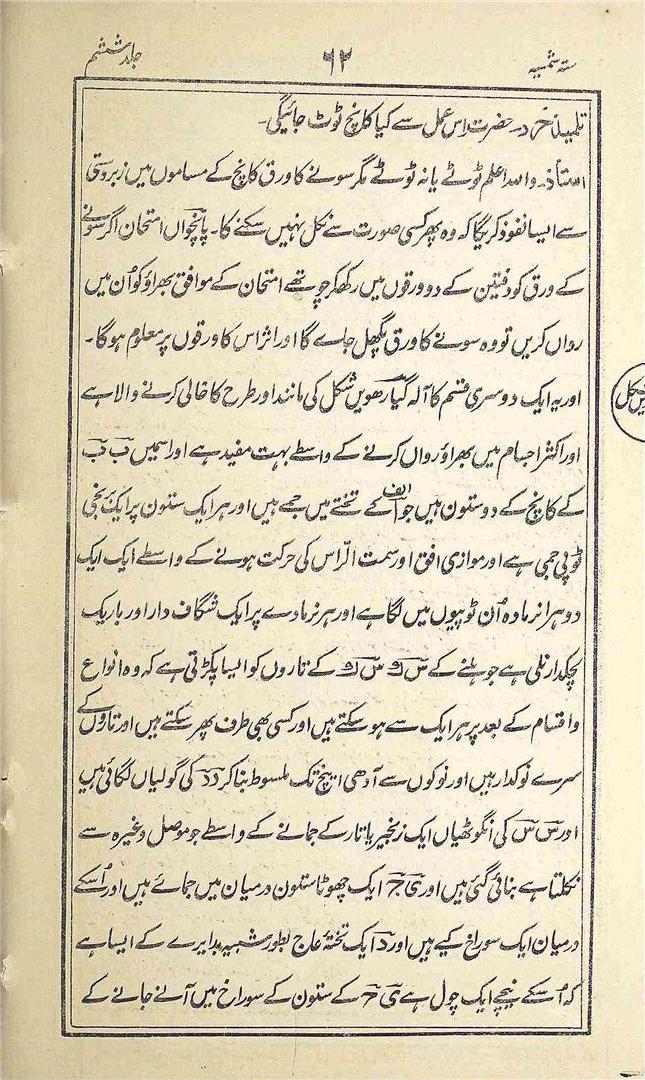 ستہ شمسیہ ۶۲ جلد ششم
تلمیذ خرد۔ حضرت اس عمل سے کیا کانچ ٹوٹ جائیگی۔
استاذ۔ واللہ اعلم ٹوٹے یا نہ ٹوٹے مگر سونے کا ورق کانچ کے مساموں میں زبردستی
سے ایسا نفوذ کریگا کہ وہ پھر کسی صورت سے نکل نہیں سکنے کا۔ پانچواں امتحان اگر سونے
کے ورق کو دفتین کے دو ورقوں میں رکھکر چوتھے امتحان کے موافق بھراؤ کو اُن میں
رواں کریں تو وہ سونے کا ورق پگھل جاے گا اور اثر اس کا ورقوں پر معلوم ہوگا۔
اور یہ ایک دوسری قسم کا آلہ گیارھویں شکل کی مانند اور طرح کا خالی کرنے والا ہے
اور اکثر اجسام میں بھراؤ رواں کرنے کے واسطے بہت مفید ہے اور اسمیں ب ب
کے کانچ کے دو ستون ہیں جو الف کے تختے میں جمے ہیں اور ہر ایک ستون پر ایک برنجی
ٹوپی جمی ہے اور موازی افق اور سمت الراس کی حرکت ہونے کے واسطے ایک ایک
دوہرا نر مادہ اُن ٹوپیوں میں لگا ہے اور ہر نر مادے پر ایک شگاف دار اور باریک
لچکدار نلی ہے جو ہلنے کے س ک س ک کے تاروں کو ایسا پکڑتی ہے کہ وہ انواع
و اقسام کے بعد پر ہر ایک سے ہو سکتے ہیں اور کسی بھی طرف پھر سکتے ہیں اور تاروں کے
سرے نوکدار ہیں اور نوکوں سے آدھی اینچ تک ملسوط بنا کر د د کی گولیاں لگائی ہیں
اور س س کی انگوٹھیاں ایک زنجیر یا تار کے جمانے کے واسطے جو موصل وغیرہ سے
نکلتا ہے بنائی گئی ہیں اور ی ح ایک چھوٹا ستون درمیان میں جمائے ہیں اور اُسکے
درمیان ایک سوراخ کیے ہیں اور د ایک تختۂ عاج بطور شبیہ دایرے کے ایسا ہے
کہ اُسکے نیچے ایک چول ہے ی ح کے ستون کے سوراخ میں آنے جانے کے